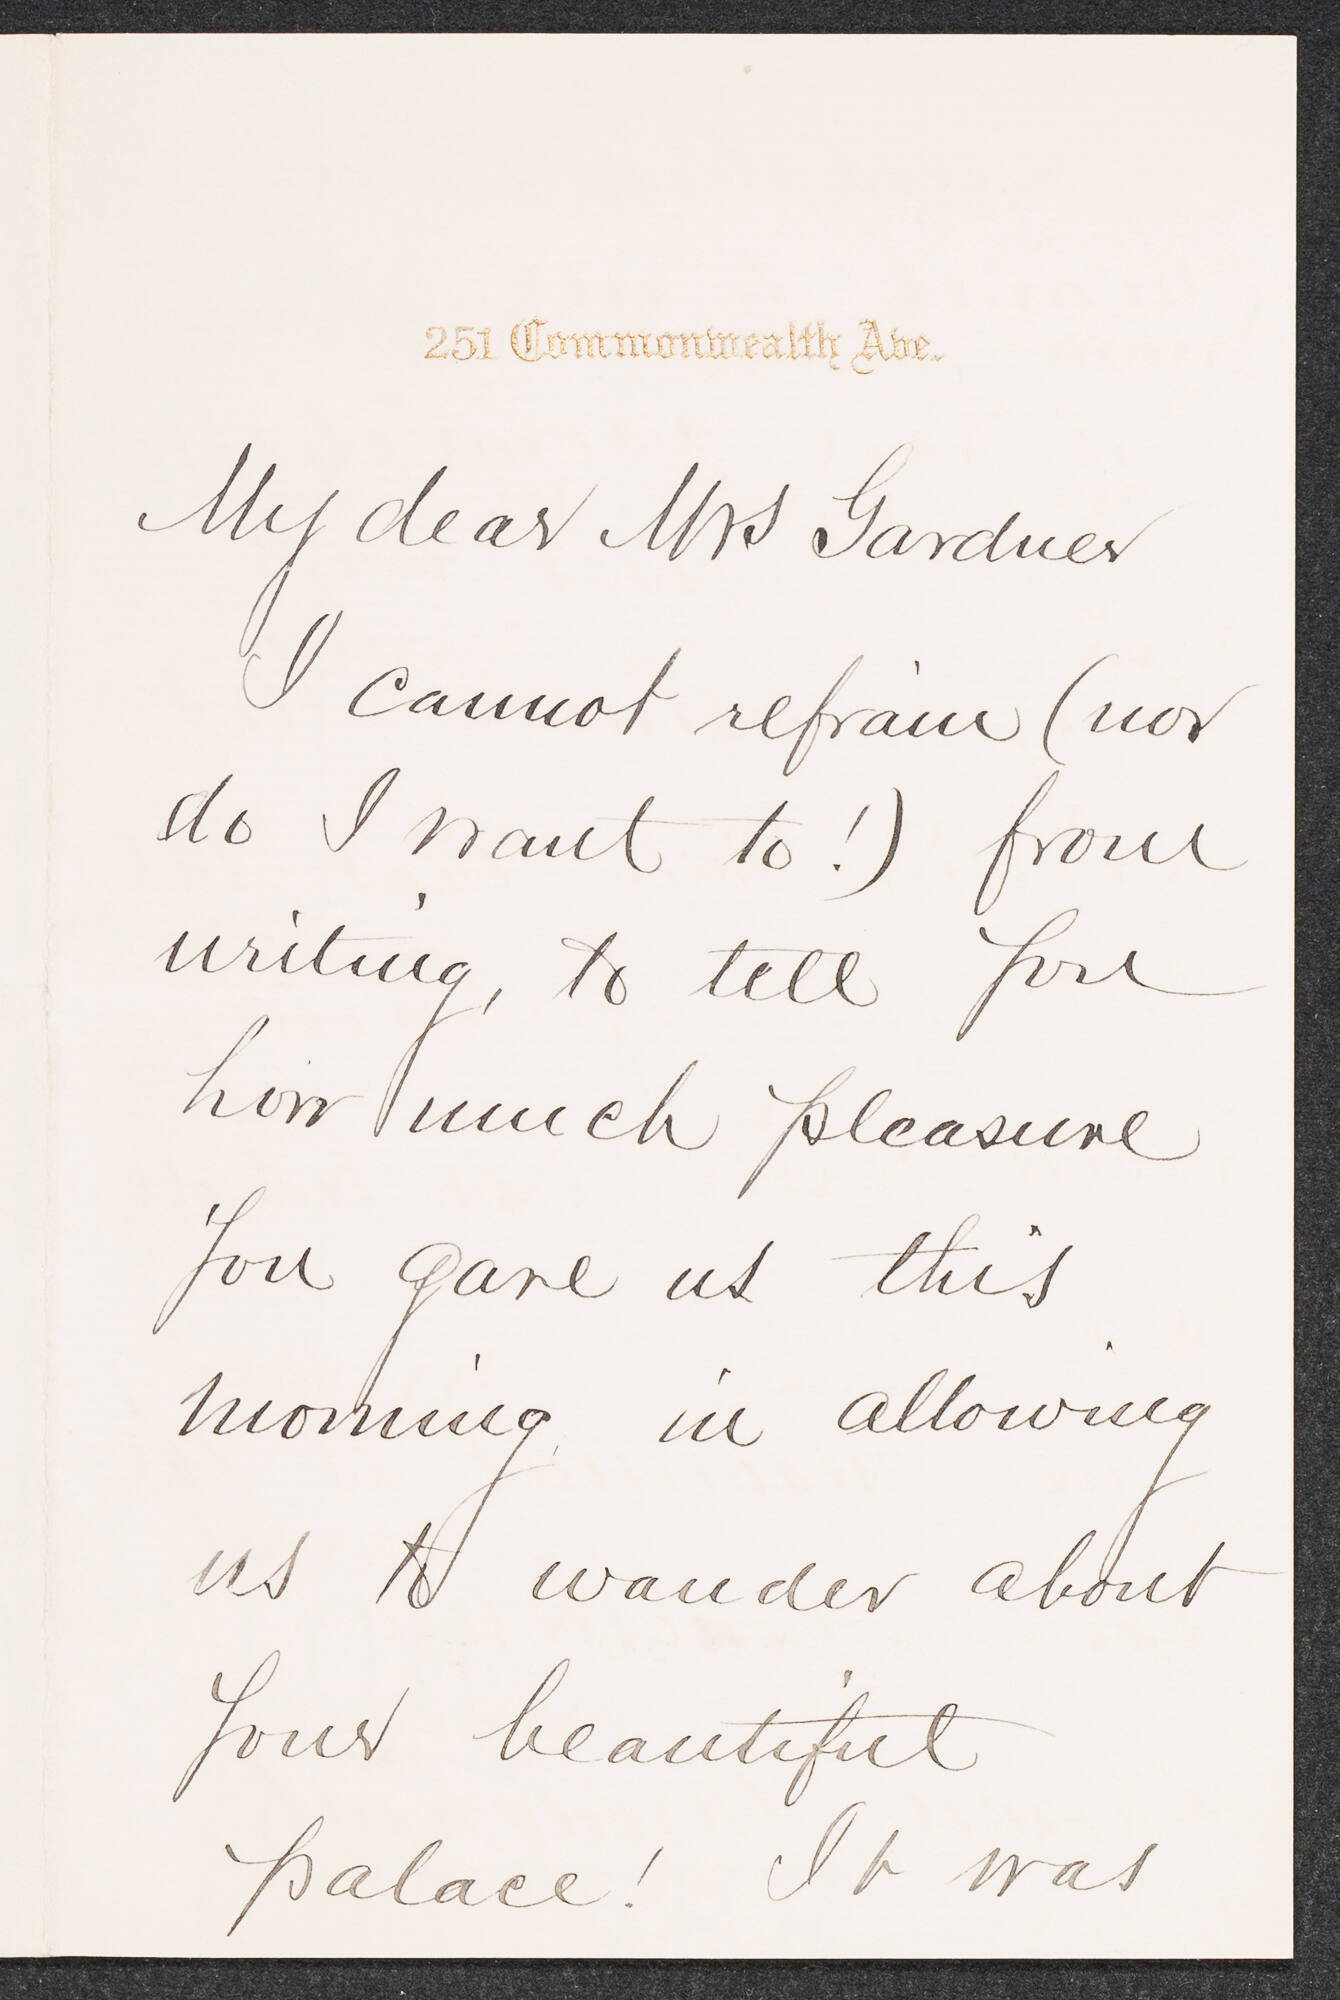 251 Commonwealth Ave.
My dear Mrs Gardner
I cannot refrain (nor
do I want to!) from
writing, to tell you
how much pleasure
you gave us this
morning, in allowing
us to wander about
your beautiful
palace! It was